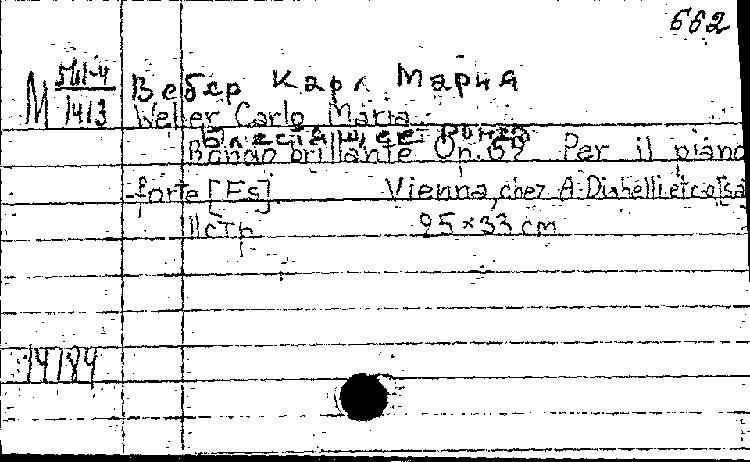 662
М 561-4/1413 Вебер Карл Мария
Weber Carlo Maria.
Блестящее Рондо
Rondo brillante Op. 62 Per il piano
-forte [Es] Vienna, chez A. Diabelli et c.
11 стр 25×33 cm
14184